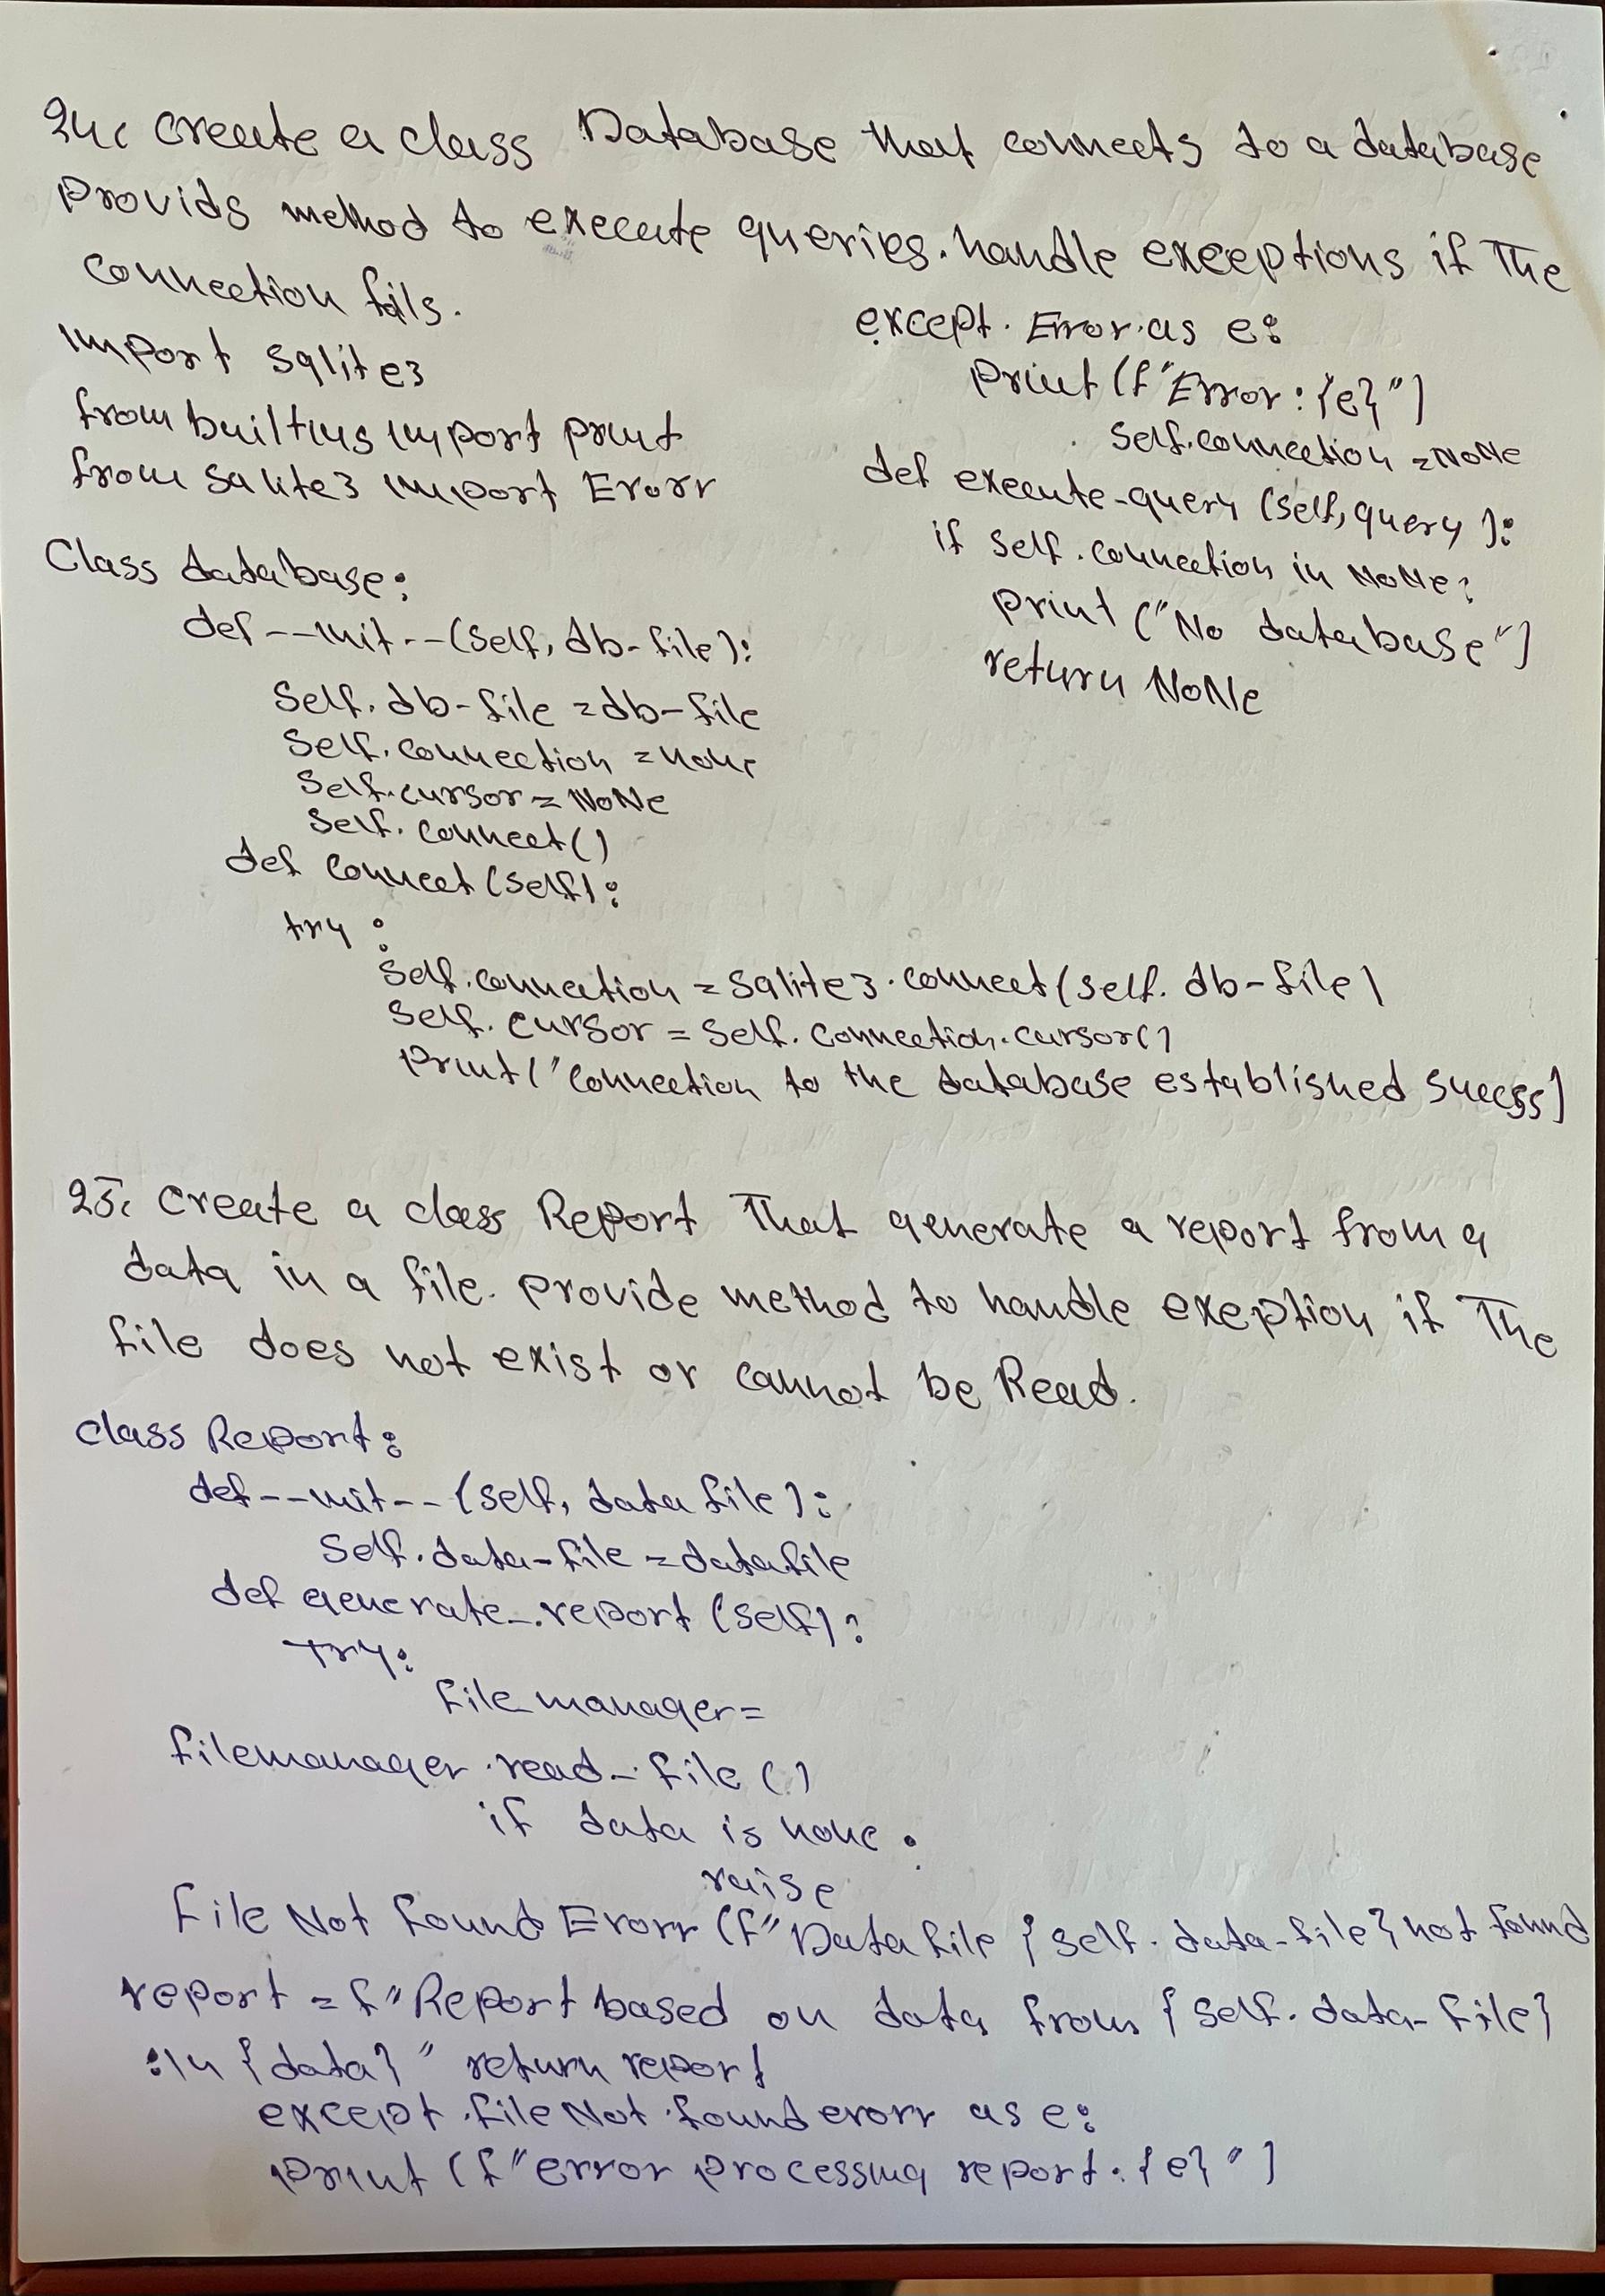 24. Create a class Database that connects to a database
Provids method to execute queries. handle exceptions if The
connection fails.
import sqlite3
from builtins import print
from sqlite3 import Erorr
Class database:
def --init--(self, db-file):
Self. db-file = db-file
Self. connection = none
Self.cursor = NoNe
Self. connect()
def connect (self):
try :
Self.connection = sqlite3.connect(self. db-file)
Self. cursor = Self. connection.cursor()
Print("connection to the database established success)
except. Error as e:
Print (f"Error: {e}")
Self.connection = NoNe
def execute-query (self, query ):
if self.connection in NoNe:
print ("No database")
return NoNe
25. Create a class Report That generate a report from a
data in a file. provide method to handle exeption if The
file does not exist or cannot be Read.
class Report:
def --init-- (self, data file ):
Self.data-file = datafile
def generate_report (self):
Try:
file manager=
filemanager.read-file ()
if data is none.
raise
file Not found Erorr (f"Data file {self. data-file} not found
report = f"Report based on data from {self. data-file}
:\n {data}" return report
except .file Not found erorr as e:
print (f"error processing report: {e}")